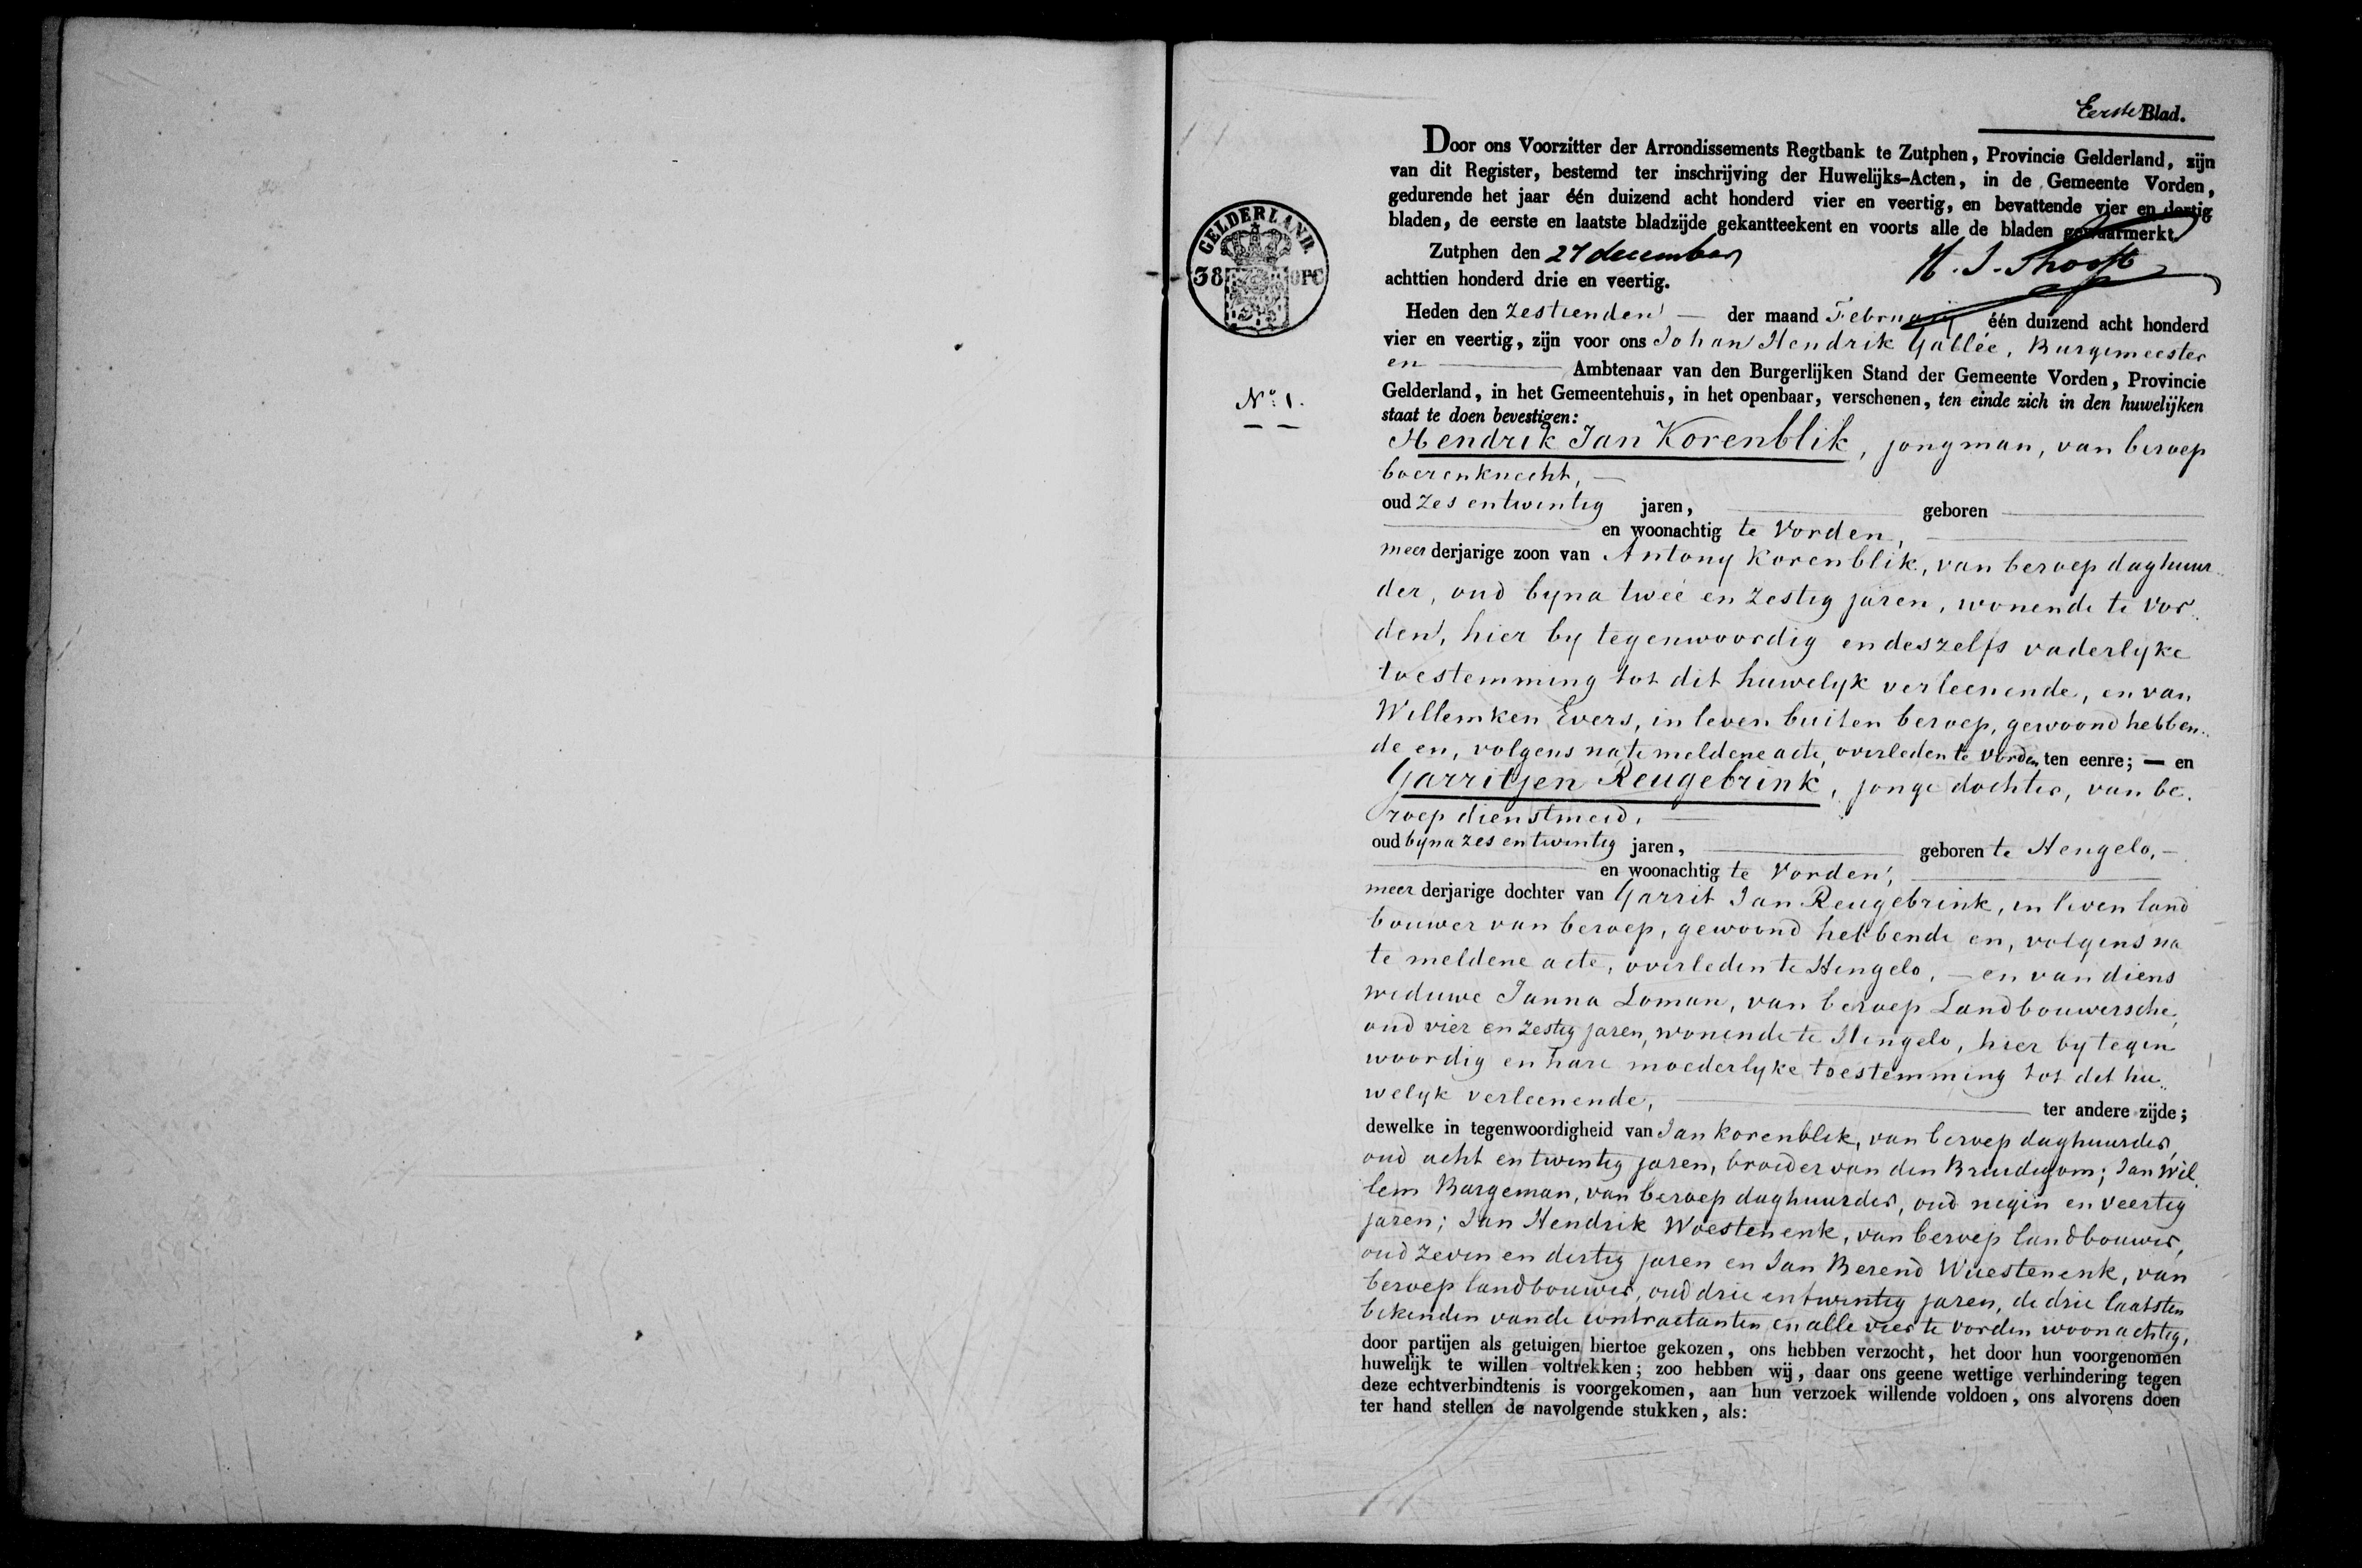 Eerste Blad.
Door ons Voorzitter der Arrondissements Regtbank te Zutphen, Provincie Gelderland, zijn
van dit Register, bestemd ter inschrijving der Huwelijks-Acten, in de Gemeente Vorden,
gedurende het jaar één duizend acht honderd vier en veertig, en bevattende vier en dertig
bladen, de eerste en laatste bladzijde gekantteekent en voorts alle de bladen gewaarmerkt.
Zutphen den 27 december
achttien honderd drie en veertig.
GELDERLAND.
38
OPC
Heden den zestienden — der maand February één duizend acht honderd
vier en veertig, zijn voor ons Johan Hendrik Gallée, Burgemeester
en — Ambtenaar van den Burgerlijken Stand der Gemeente Vorden, Provincie
Gelderland, in het Gemeentehuis, in het openbaar, verschenen, ten einde zich in den huwelijken
staat te doen bevestigen:
No. 1.
Hendrik Jan Korenblik, jongman, van beroep
boerenknecht, —
oud zes entwintig jaren, — geboren —
— en woonachtig te Vorden, —
meerderjarige zoon van Antony Korenblik, van beroep daghuur..
der, oud byna twee en zestig jaren, wonende te Vor..
den, hier by tegenwoordig en deszelfs vaderlyke
toestemming tot dit huwelyk verleenende, en van
Willemken Evers, in leven buiten beroep, gewoond hebben..
de en, volgens na te meldene acte, overleden te Vorden ten eenre; — en
Garritjen Reugebrink, jonge dochter, van be.
roep dienstmeid, —
oud byna zes entwintig jaren, — geboren te Hengelo, —
— en woonachtig te Vorden, —
meerderjarige dochter van Garrit Jan Reugebrink, in leven land
bouwer van beroep, gewoond hebbende en, volgens na
te meldene acte, overleden te Hengelo, — en van diens
weduwe Janna Loman, van beroep Landbouwersche,
oud vier en zestig jaren, wonende te Hengelo, hier by tegen
woordig en hare moederlyke toestemming tot dit hu..
welyk verleenende, — ter andere zijde;
dewelke in tegenwoordigheid van Jan Korenblik, van beroep daghuurder,
oud acht entwintig jaren, broeder van den Bruidegom; Jan Wil.
lem Bargeman, van beroep daghuurder, oud negen en veertig
jaren; Jan Hendrik Woestenenk, van beroep landbouwer,
oud zeven en dertig jaren en Jan Berend Wuestenenk, van
beroep landbouwer, oud drie entwintig jaren, de drie laatsten
bekenden van de contractanten en alle vier te Vorden woonachtig,
door partijen als getuigen hiertoe gekozen, ons hebben verzocht, het door hun voorgenomen
huwelijk te willen voltrekken; zoo hebben wij, daar ons geene wettige verhindering tegen
deze echtverbindtenis is voorgekomen, aan hun verzoek willende voldoen, ons alvorens doen
ter hand stellen de navolgende stukken, als: